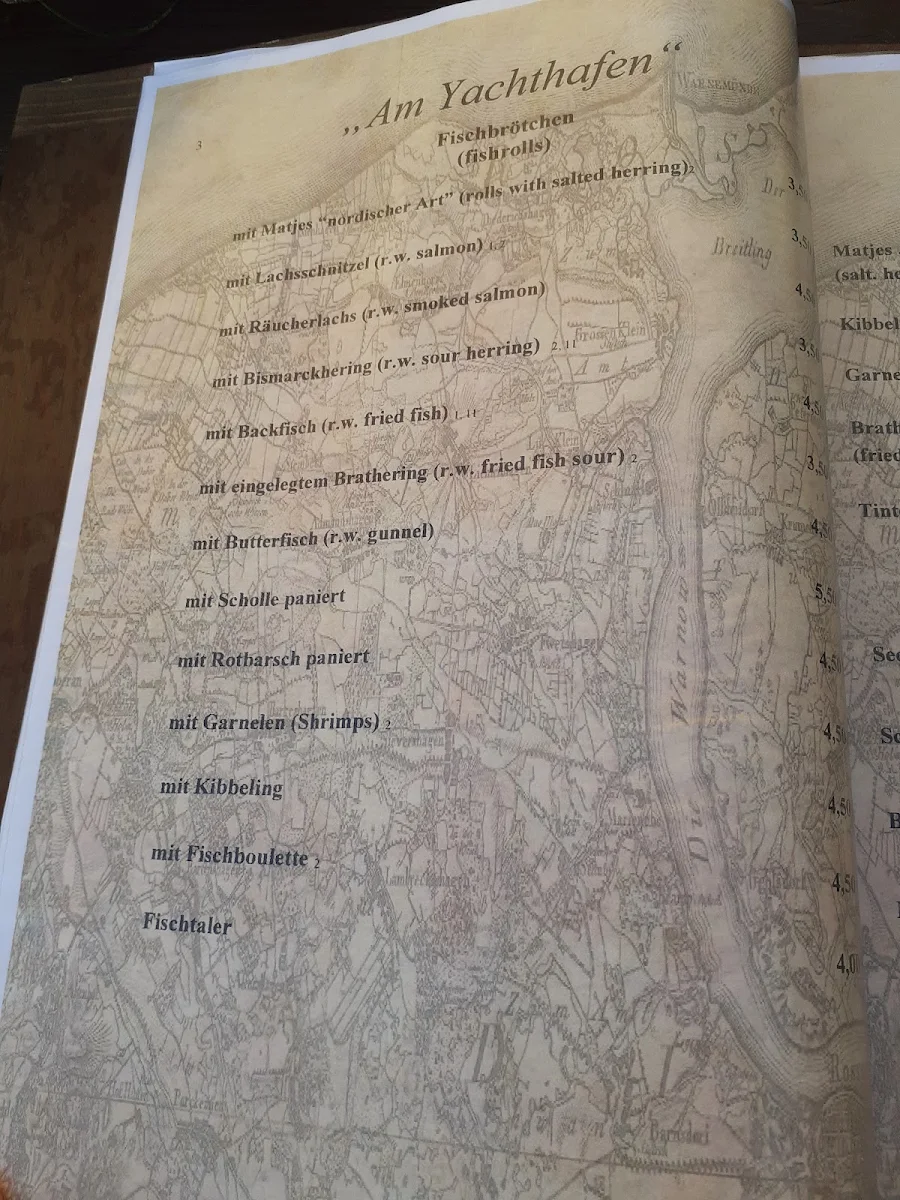 „Am Yachthafen“
3
Fischbrötchen
(fishrolls)
mit Matjes “nordischer Art” (rolls with salted herring)2
3,5
mit Lachsschnitzel (r.w. salmon) 1, 2
3,5
mit Räucherlachs (r.w. smoked salmon)
4,5
mit Bismarckhering (r.w. sour herring) 2, 11
3,5
mit Backfisch (r.w. fried fish) 1, 11
4,5
mit eingelegtem Brathering (r.w. fried fish sour) 2
3,5
mit Butterfisch (r.w. gunnel)
4,5
mit Scholle paniert
5,5
mit Rotbarsch paniert
4,5
mit Garnelen (Shrimps) 2
4,5
mit Kibbeling
4,50
mit Fischboulette 2
4,50
Fischtaler
4,0
WARNEMÜNDE
Der
Breitling
Gross Klein
Warnow
Die
Matjes
(salt. he
Kibbel
Garne
Brath
(fried
Tint
See
Sc
B